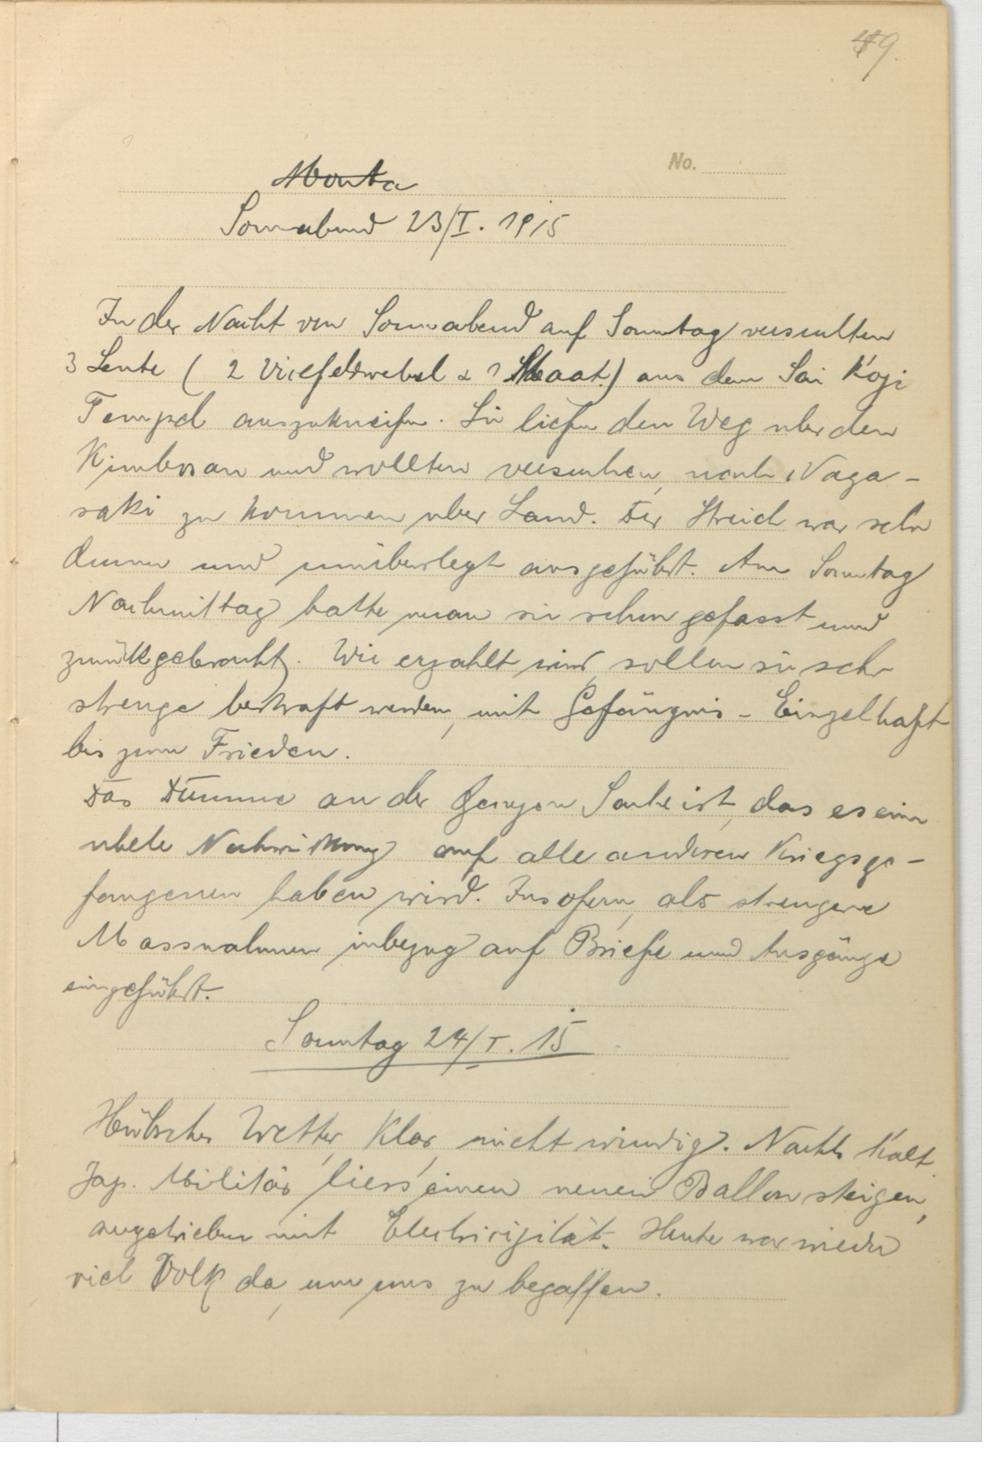 49.
No.
Monta
Sonnabend 23/I. 1915
In der Nacht von Sonnabend auf Sonntag versuchten
3 Leute ( 2 Vicefeldwebel & 1 Maat.) aus dem Sai Koji
Tempel auszukneifen. Sie liefen den Weg uber den
Kimbosan und wollten versuchen, nach Naga-
saki zu kommen uber Land. Der Streich war sehr
dumm und unüberlegt ausgeführt. Am Sonntag
Nachmittag hatte man sie schon gefasst und
zurückgebracht. Wie erzahlt wird sollen sie sehr
strenge bestraft werden, mit Gefängnis - Einzelhaft
bis zum Frieden.
Das Dumme an der ganzen Sache ist, das es eine
ubele Nachwirkung auf alle anderen Kriegsge-
fangenen haben wird. Insofern, als strengere
Massnahmen inbezug auf Briefe und Ausgänge
eingeführt.
Sonntag 24/I. 15
Hübsches Wetter, Klar, nicht windig. Nachts Kalt.
Jap. Militär liess einen neuen Ballon steigen,
angetrieben mit Electrizität. Heute war wieder
viel Volk da, um uns zu begaffen.